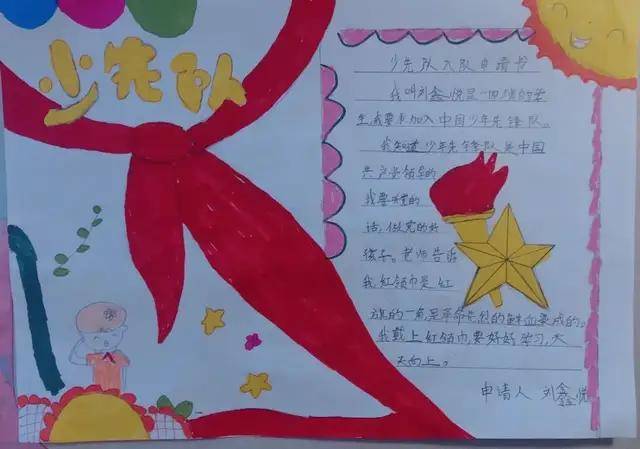 少先队
少先队入队申请书
我叫刘鑫悦是一四班的学
生,我要求加入中国少年先锋队。
我知道少年先锋队是中国
共产党领导的
我要听党的
话,做党的好
孩子。老师告诉
我红领巾是红
旗的一角是革命先烈的鲜血染成的。
我戴上红领巾,要好好学习,天
天向上。
申请人 刘鑫悦